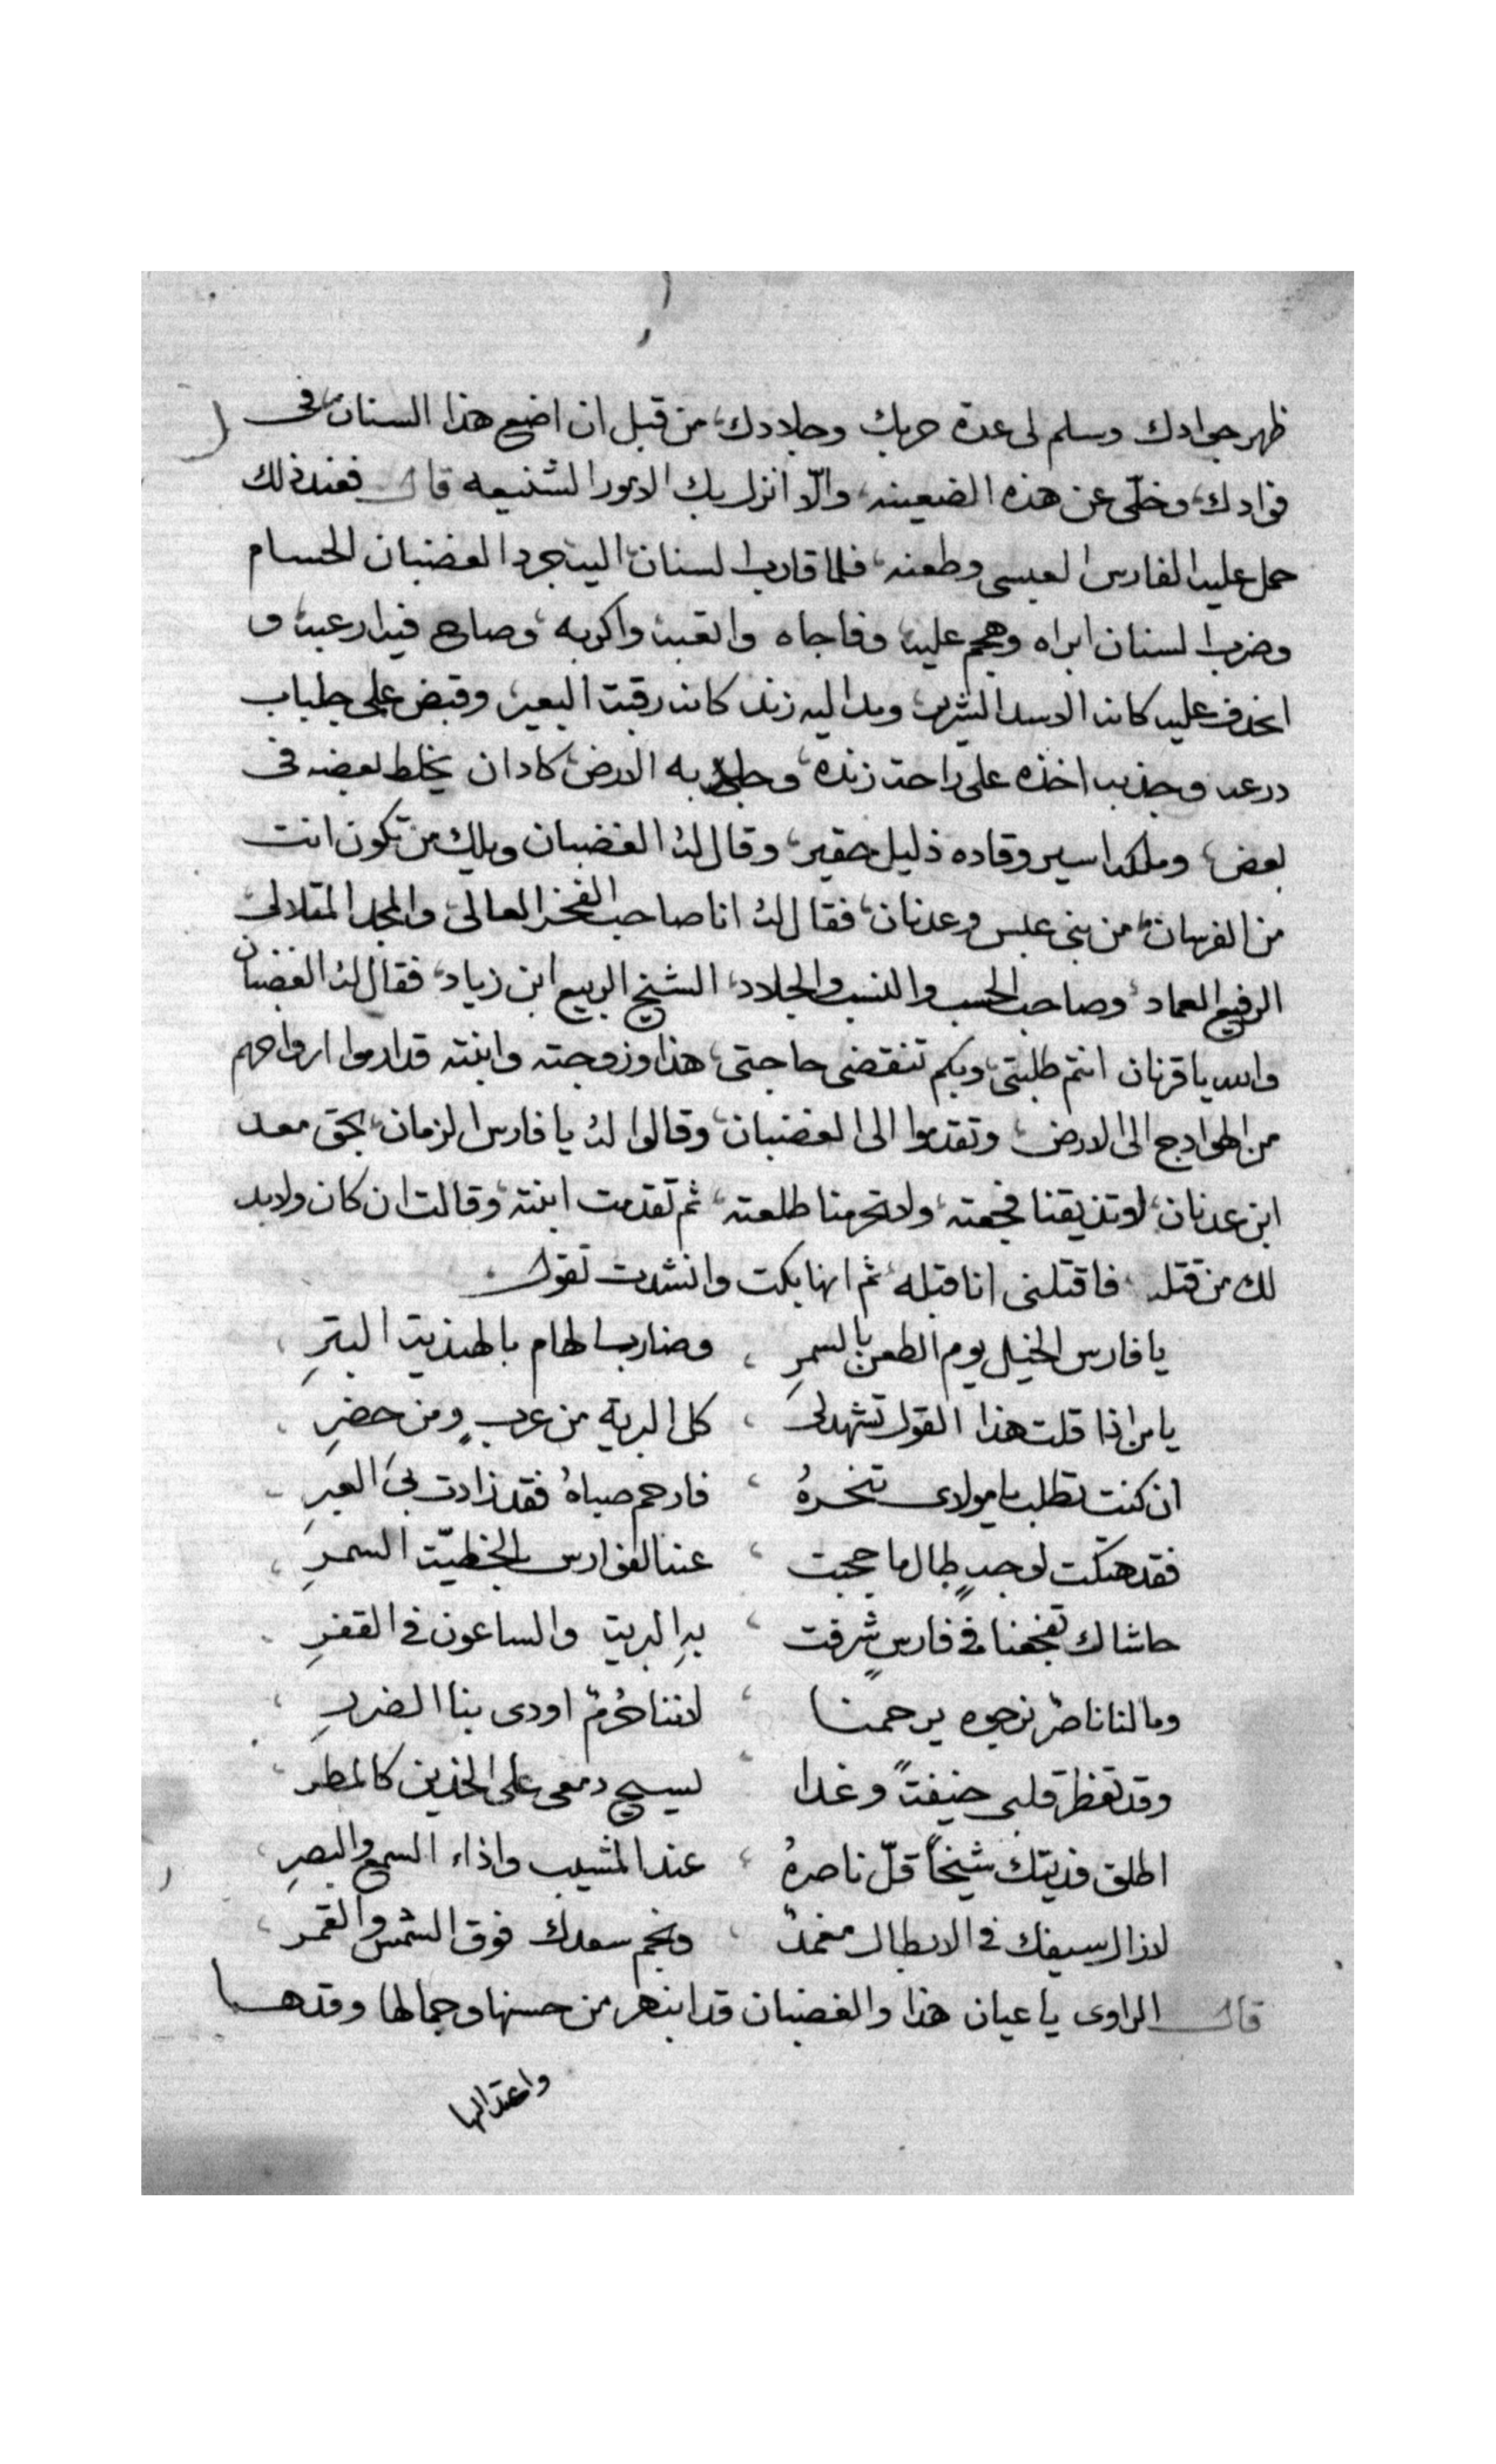 ظهر جوادك وسلم لى عدة حربك وجلادك، من قبل ان اضع هذا السنان، فى
فوادك، وخلّى عن هذه الضعينه، والّا انزل بك الامور الشنيعه قال فعند ذلك
حمل عليه الفارس العبسى وطعنه، فلما قارب السنان، اليه جرد الغضبان الحسام
وضرب السنان ابراه وهجم عليه، وفاجاه واتعبه واكربه، وصاح فيه ارعبه، و
انحدف عليه كانه الاسد الشره، ومد اليه زند كانه رقبت البعير، وقبض على جلباب
درعه وجذبه اخذه على راحت زنده، وجلد به الارض، كاد ان يخلط بعضه فى
بعض، وملكه اسير وقاده ذليل حقير، وقال له الغضبان ويلك من تكون انت
من الفرسان، من بنى عبس وعدنان، فقال له انا صاحب الفخر العالى، والمجد المتلالى،
الرفيع العماد، وصاحب الحسب والنسب والجلاد، الشيخ الربيع ابن زياد، فقال له الغضبان
والله يا قرنان انتم طلبتى، وبكم تنقضى حاجتى، هذا وزوجته وابنته قد ارموا ارواحهم
من الهوادج الى الارض، وتقدموا الى الغضبان، وقالوا له يا فارس الزمان، بحق معد
ابن عدنان، لا تذيقنا فجعته، ولا تحرمنا طلعته، ثم تقدمت ابنته، وقالت ان كان ولا بد
لك من قتله، فاقتلنى انا قبله، ثم انها بكت وانشدت تقول
يا فارس الخيل يوم الطعن بالسمرِ ، وضارب الهام بالهنديت البترِ ،
يا من اذا قلت هذا القول تشهد لى ، كل البرية من عربٍ ومن حضرِ ،
ان كنت تطلب يا مولاى تنحرهُ ، فارحم صباهُ فقد زادت بى العبرِ
فقد هتكت لوجهٍ طال ما حجبت ، عند الفوارس بالخطيّت السمرِ ،
حاشاك تفجعنا فى فارسٍ شرفت ، بهِ البريت والساعون فى القفرِ
وما لنا ناصرٌ نرجوه يرحمنا ، لاننا حُرمٌ اودى بنا الضررِ ،
وقد تفطر قلبى خيفتً وغدا ، يسيح دمعى على الخدين كالمطر ،
اطلق فديتك شيخاً قلّ ناصرهُ ، عند المشيب واذاء السمع والبصرِ ،
لا زال سيفك فى الابطال مغمدٌ ، ونجم سعدك فوق الشمس والقمر ،
قال الراوى يا عيان هذا والغضبان قد انبهر من حسنها وجمالها وقدها
واعتدالها